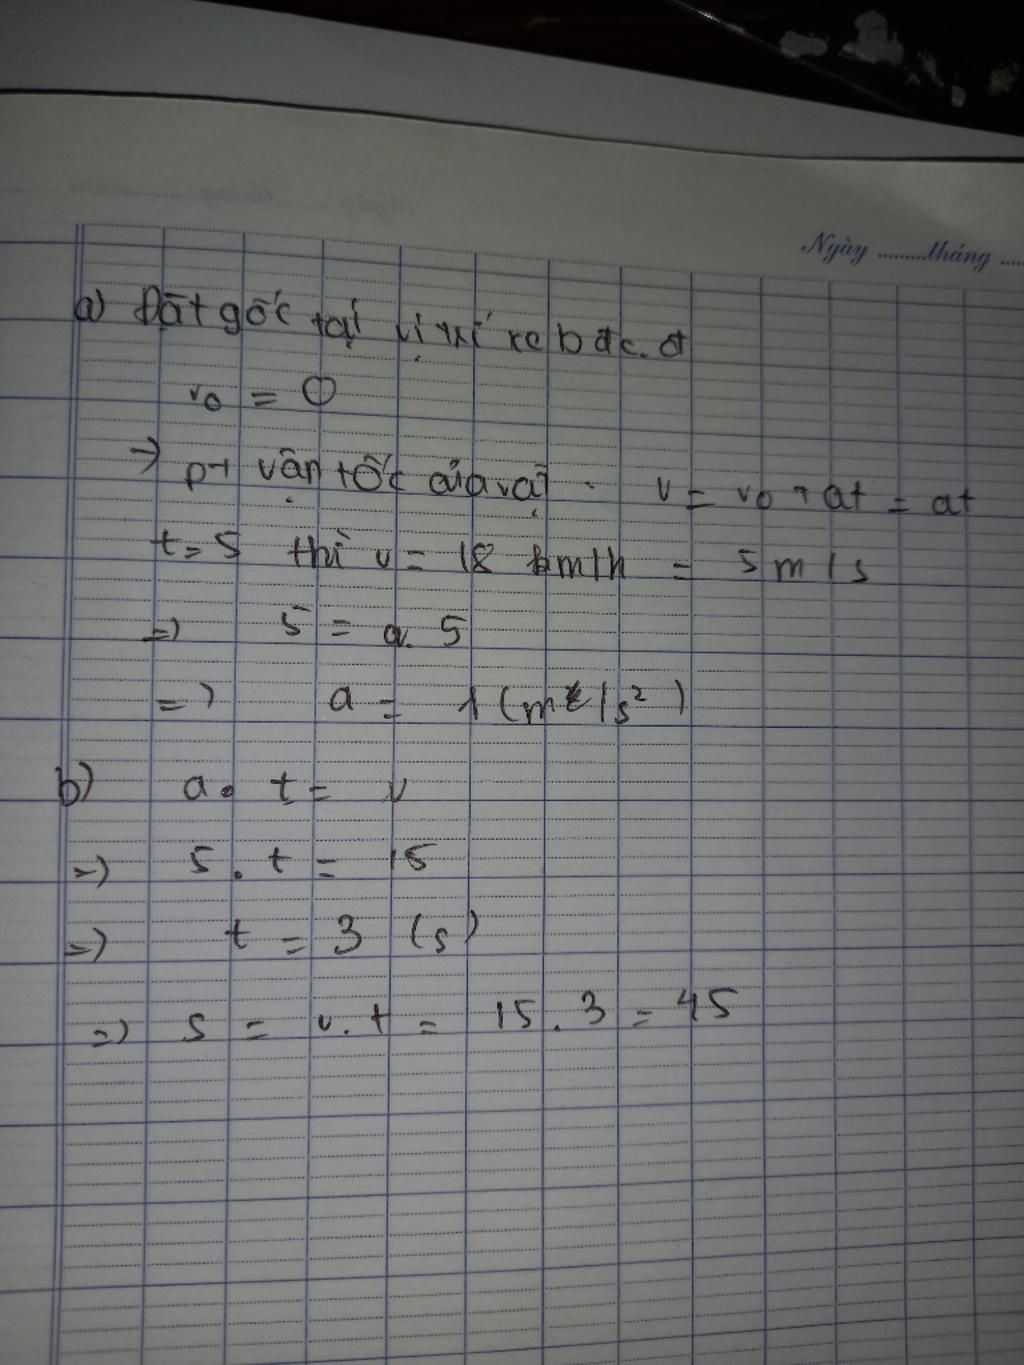 Ngày .........tháng ....
a) Đặt gốc tại vị trí xe bđ c.đ
v₀ = 0
=> pt vận tốc của vật. v = v₀ + at = at
t = 5 thì v = 18 km/h = 5 m/s
=> 5 = a. 5
=> a = 1 (m/s²)
b) a. t = v
=> 5. t = 15
=> t = 3 (s)
=> s = v. t = 15. 3 = 45